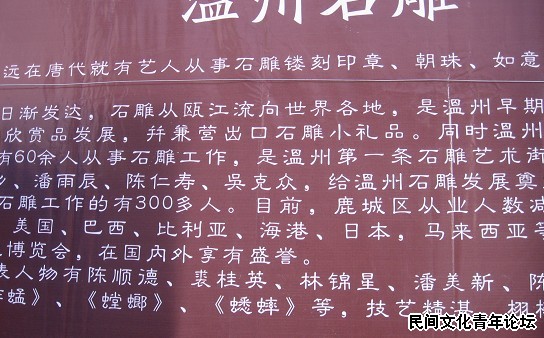 温州石雕
远在唐代就有艺人从事石雕镂刻印章、朝珠、如意
日渐发达，石雕从瓯江流向世界各地，是温州早期
欣赏品发展，并兼营出口石雕小礼品。同时温州
有60余人从事石雕工作，是温州第一条石雕艺术街
、潘雨辰、陈仁寿、吴克众，给温州石雕发展奠
石雕工作的有300多人。目前，鹿城区从业人数减
美国、巴西、比利亚、海港、日本，马来西亚等
博览会，在国内外享有盛誉。
表人物有陈顺德、裴桂英、林锦星、潘美新、陈
蜢》、《螳螂》、《蟋蟀》等，技艺精湛，栩栩
民间文化青年论坛